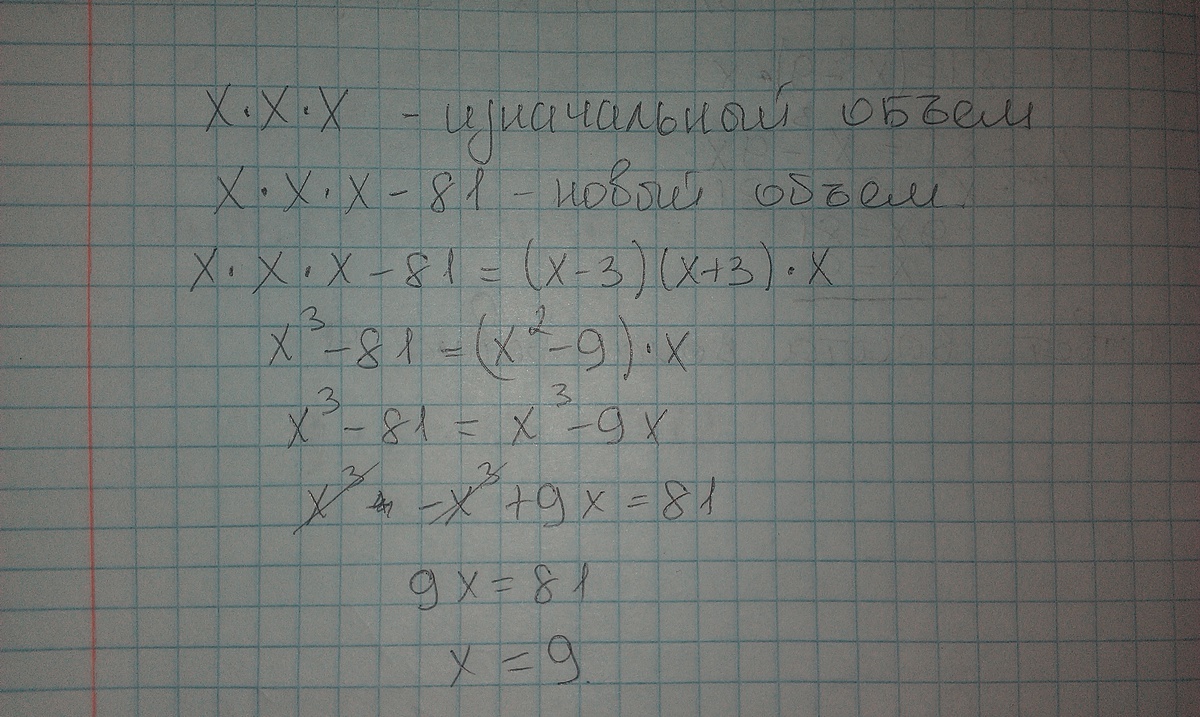 X·X·X - изначальный объем
X·X·X-81 - новый объем.
X·X·X-81=(x-3)(x+3)·X
x³-81=(x²-9)·x
x³-81=x³-9x
x³ -x³+9x=81
9x=81
x=9.